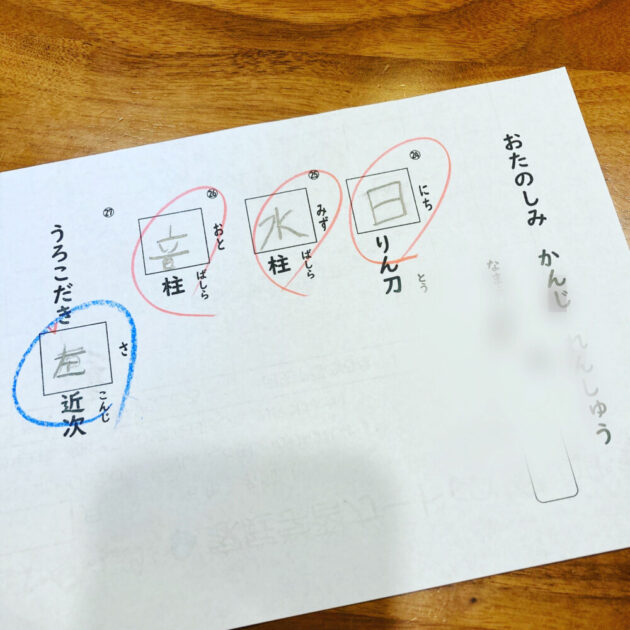 おたのしみ かんじ れんしゅう
㉔
日りん刀
にち
とう
㉕
水柱
みず
ばしら
㉖
音柱
おと
ばしら
㉗
うろこだき左近次
さ
こんじ